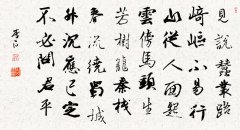 見說蠶叢路
崎嶇不易行
山從人面起
雲傍馬頭生
芳樹籠秦棧
春流繞蜀城
升沉應已定
不必問君平